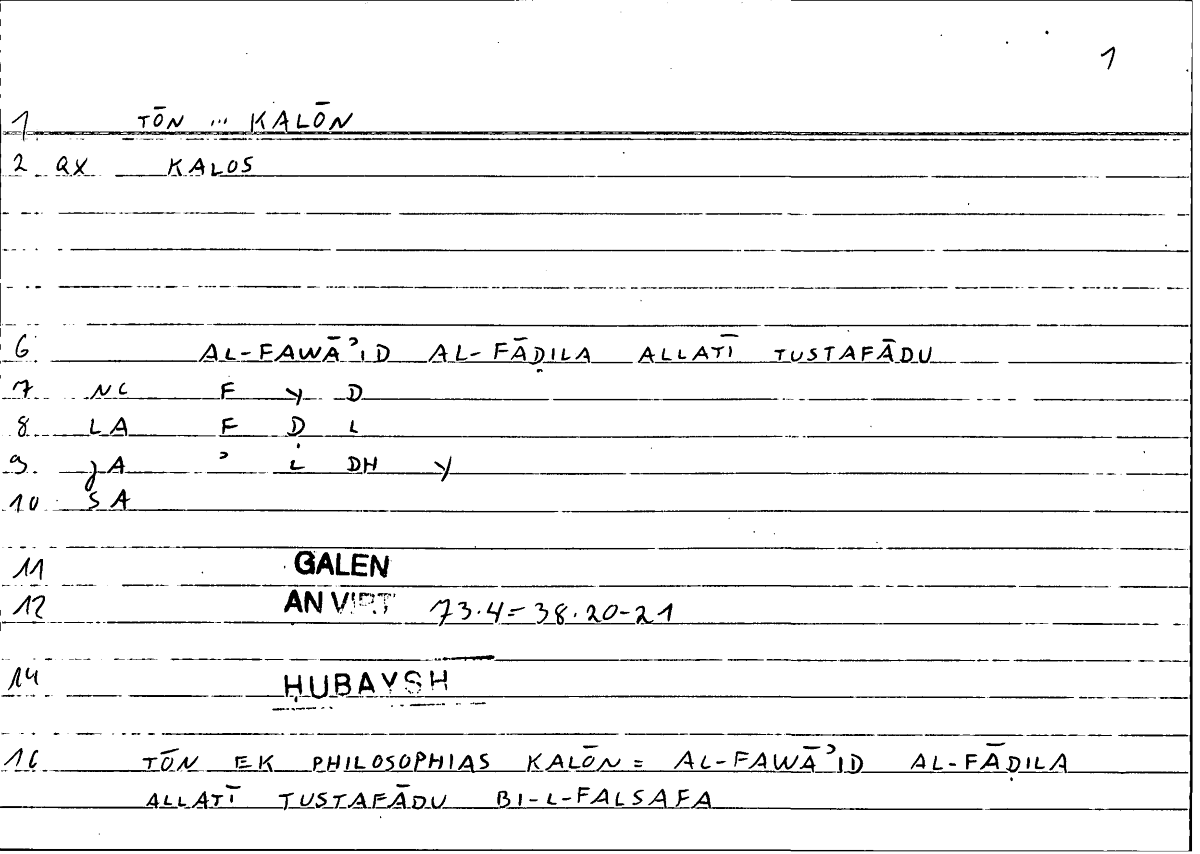 1
1 TŌN ... KALŌN
2 QX KALOS
6 AL-FAWĀʾID AL-FĀḌILA ALLATĪ TUSTAFĀDU
7 NC F Y D
8 LA F Ḍ L
9. JA ʾ L DH Y
10 SA
11 GALEN
12 AN VIRT 73.4 = 38.20-21
14 ḤUBAYSH
16 TŌN EK PHILOSOPHIAS KALŌN = AL-FAWĀʾID AL-FĀḌILA
ALLATĪ TUSTAFĀDU BI-L-FALSAFA